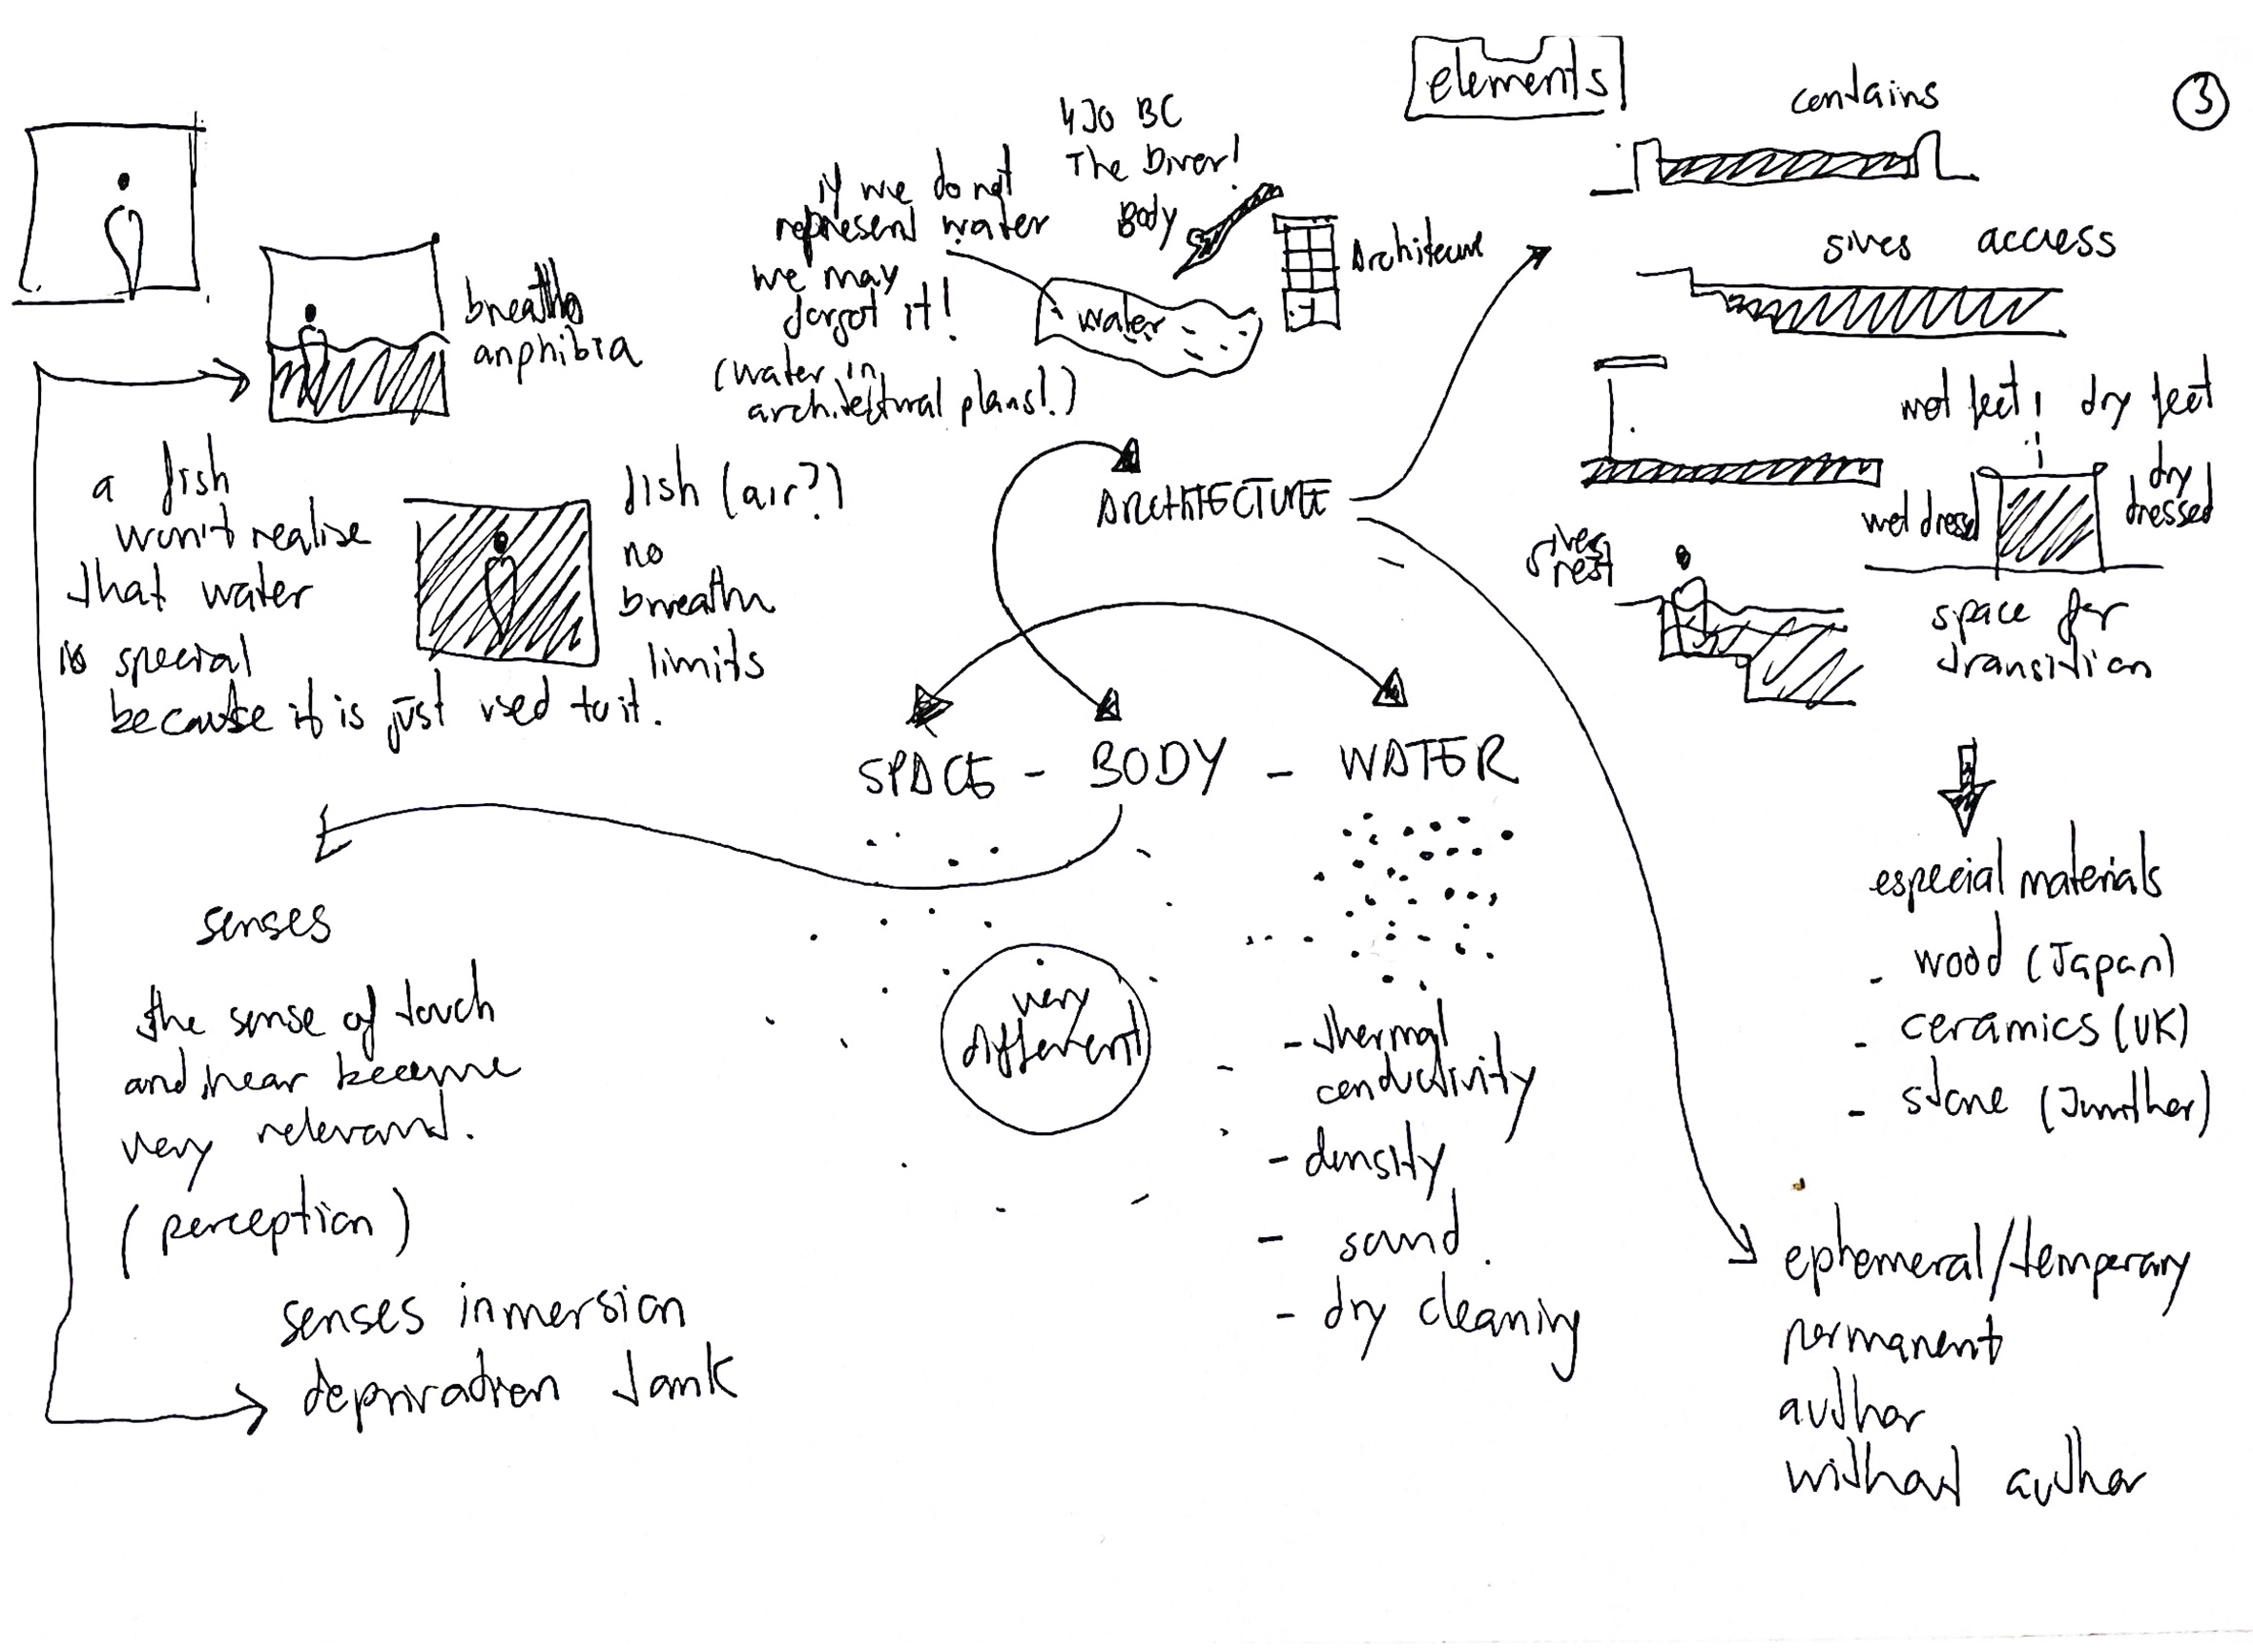 elements
contains
3
430 BC
The Diver!
Body
Architecture
if we do not
represent water
we may
forgot it!
(water in
architectural plans!)
water
gives access
breaths
anphibia
a fish
won't realise
that water
is special
because it is just used to it.
fish (air?)
no
breathe
limits
ARCHITECTURE
wet feet
dry feet
wet dressed
dry
dressed
gives
rest
space for
transition
SPACE - BODY - WATER
especial materials
- wood (Japan)
- ceramics (UK)
- stone
senses
the sense of touch
and hear become
very relevant.
(perception)
senses inmersion
deprivation tank
very
different
- thermal
conductivity
- density
- sound.
- dry cleaning
ephemeral/temporary
permanent
author
without author